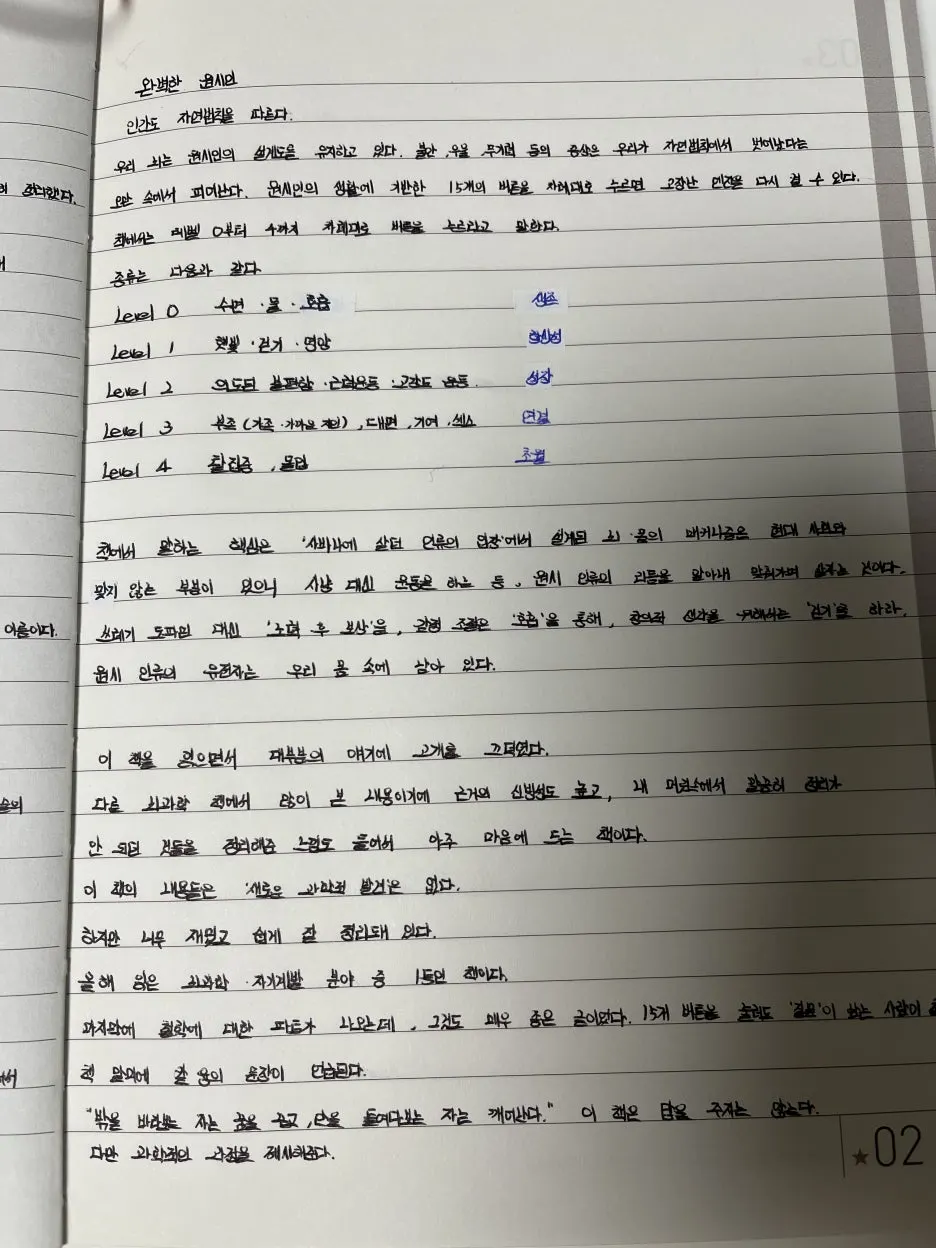 완벽한 원시인
인간도 자연법칙을 따른다.
우리 뇌는 원시인의 설계도을 유지하고 있다. 불안, 우울, 무기력 등의 증상은 우리가 자연법칙에서 벗어났다는
오만 속에서 피어난다. 원시인의 생활에 기반한 15개의 버튼을 차례대로 누르면 고장난 인간을 다시 켤 수 있다.
책에서는 레벨 0부터 4까지 차례대로 버튼을 누르라고 말한다.
종류는 다음과 같다
Level 0 수면 · 물 · 호흡 생존
Level 1 햇빛 · 걷기 · 영양 항상성
Level 2 의도된 불편함 · 근력운동 · 고강도 운동. 성장
Level 3 부족 (가족 · 가까운 지인), 대면, 기여, 섹스 연결
Level 4 창집중, 몰입 초월
책에서 말하는 핵심은 '사바나에 살던 인류의 입장'에서 설계된 뇌·몸의 메커니즘은 현대 사회와
맞지 않는 부분이 있으니 사냥 대신 운동을 하는 등, 원시 인류의 리듬을 알아내 맞춰가며 살자는 것이다.
쓰레기 도파민 대신 '노력 후 보상'을, 감정 조절은 '호흡'을 통해, 창의적 생각을 위해서는 '걷기'를 하라.
원시 인류의 유전자는 우리 몸 속에 남아 있다.
이 책을 읽으면서 대부분의 얘기에 고개를 끄덕였다.
다른 뇌과학 책에서 많이 본 내용이기에 근거의 신빙성도 높고, 내 머릿속에서 완전히 정리가
안 되던 것들을 정리해준 느낌도 들어서 아주 마음에 드는 책이다.
이 책의 내용들은 '새로운 과학적 발견'은 없다.
하지만 너무 재밌고 쉽게 잘 정리돼 있다.
올해 읽은 뇌과학 · 자기계발 분야 중 1등인 책이다.
마지막에 철학에 대한 파트가 나오는데, 그것도 매우 좋은 글이었다. 15개 버튼을 눌러도 '결핍'이 있는 사람이
책 말미에 칼 융의 문장이 언급된다.
"밖을 바라보는 자는 꿈을 꾸고, 안을 들여다보는 자는 깨어난다." 이 책은 답을 주지는 않는다.
다만 과학적인 과정을 제시해준다.
★02
이름이다.